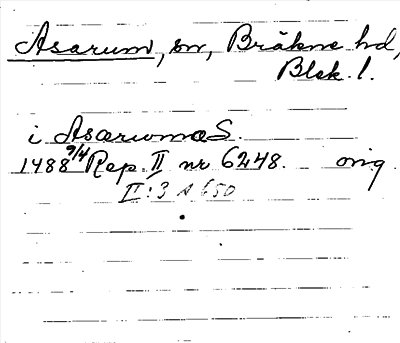 Asarum, sn, Bräkne hd,
Blek. l.
i Asarumas.
1488 9/4 Rep. II nr 6248. orig.
II:3 s 650